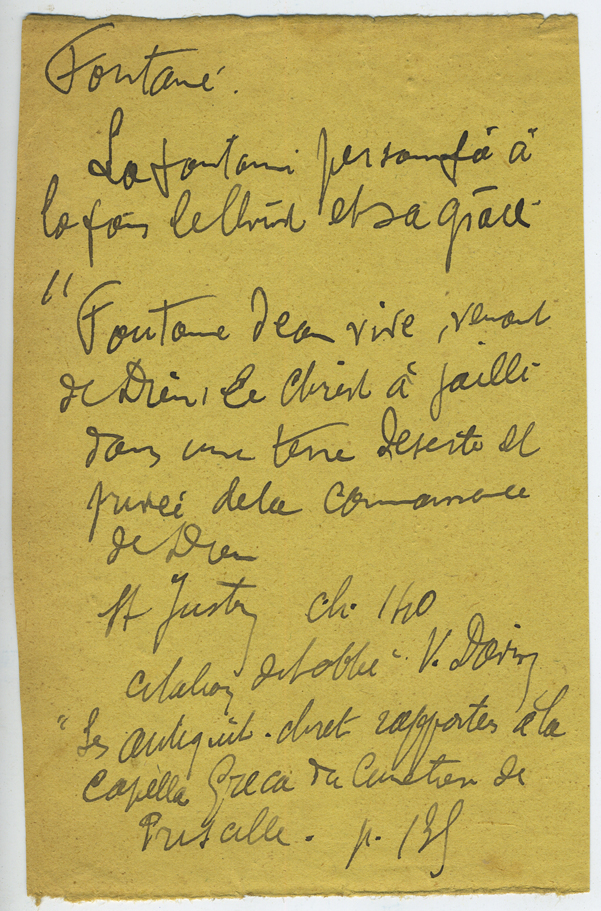 Fontaine.
La fontaine personnifiá à
la fois le Christ et sa grâce
" Fontaine d'eau vive, venant
de Dieu, le Christ à jailli
dans une terre deserte et
privée de la connaissance
de Dieu
St Justin ch. 140
citation de l'abbé V. Davin
"Les antiquit. chret rapportés à la
Capella Greca du Cimetière de
Priscille. p.